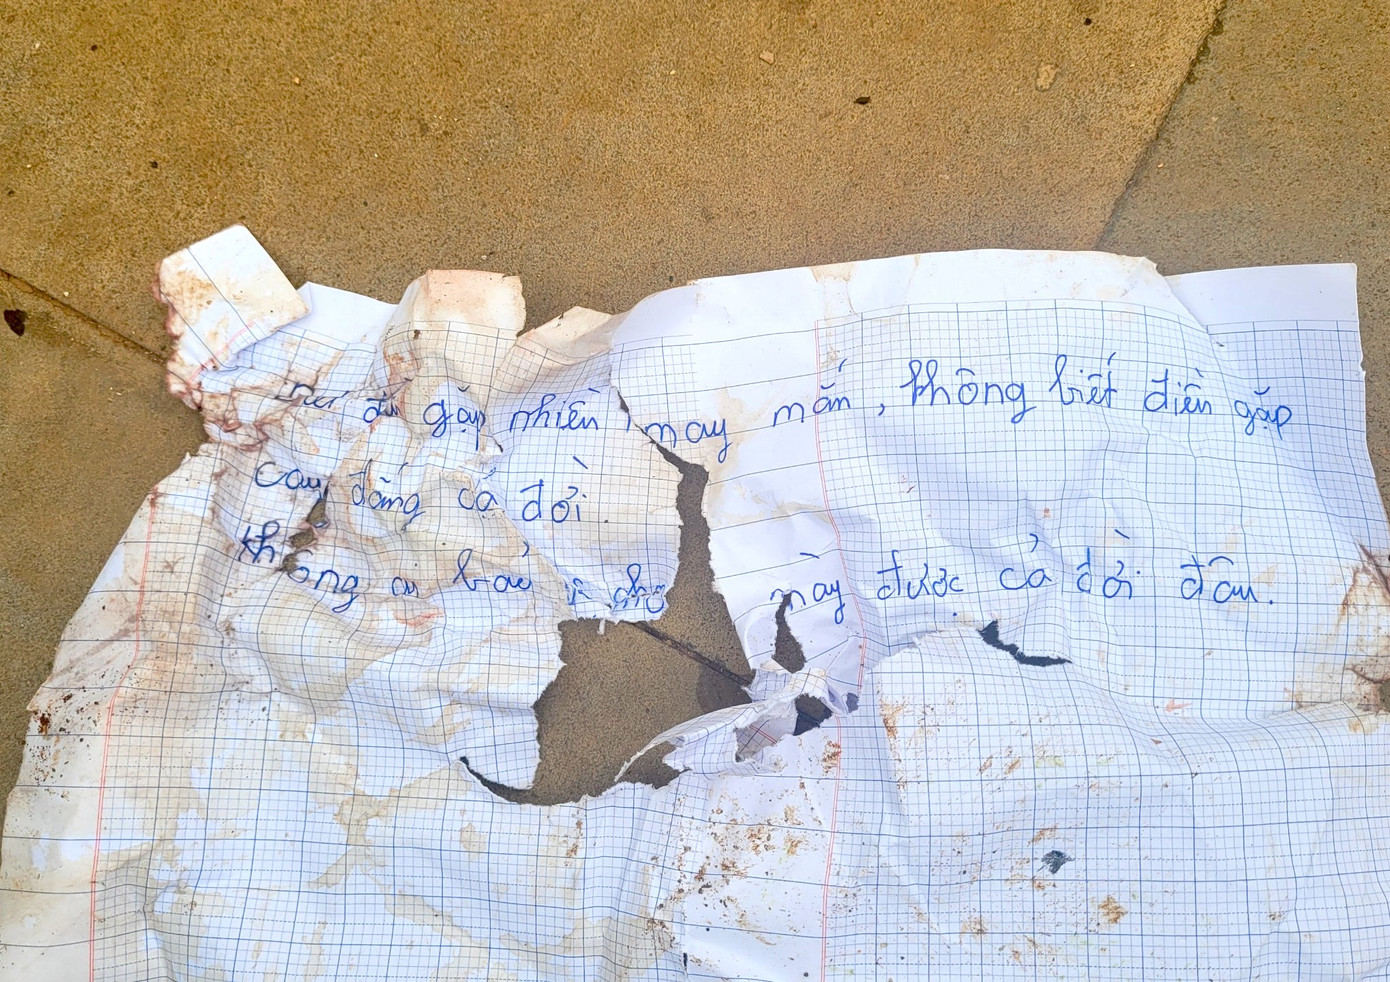 gặp nhiều may mắn, không biết điền gặp
cay đắng cả đời.
không ai bảo cho mày được cả đời đâu.